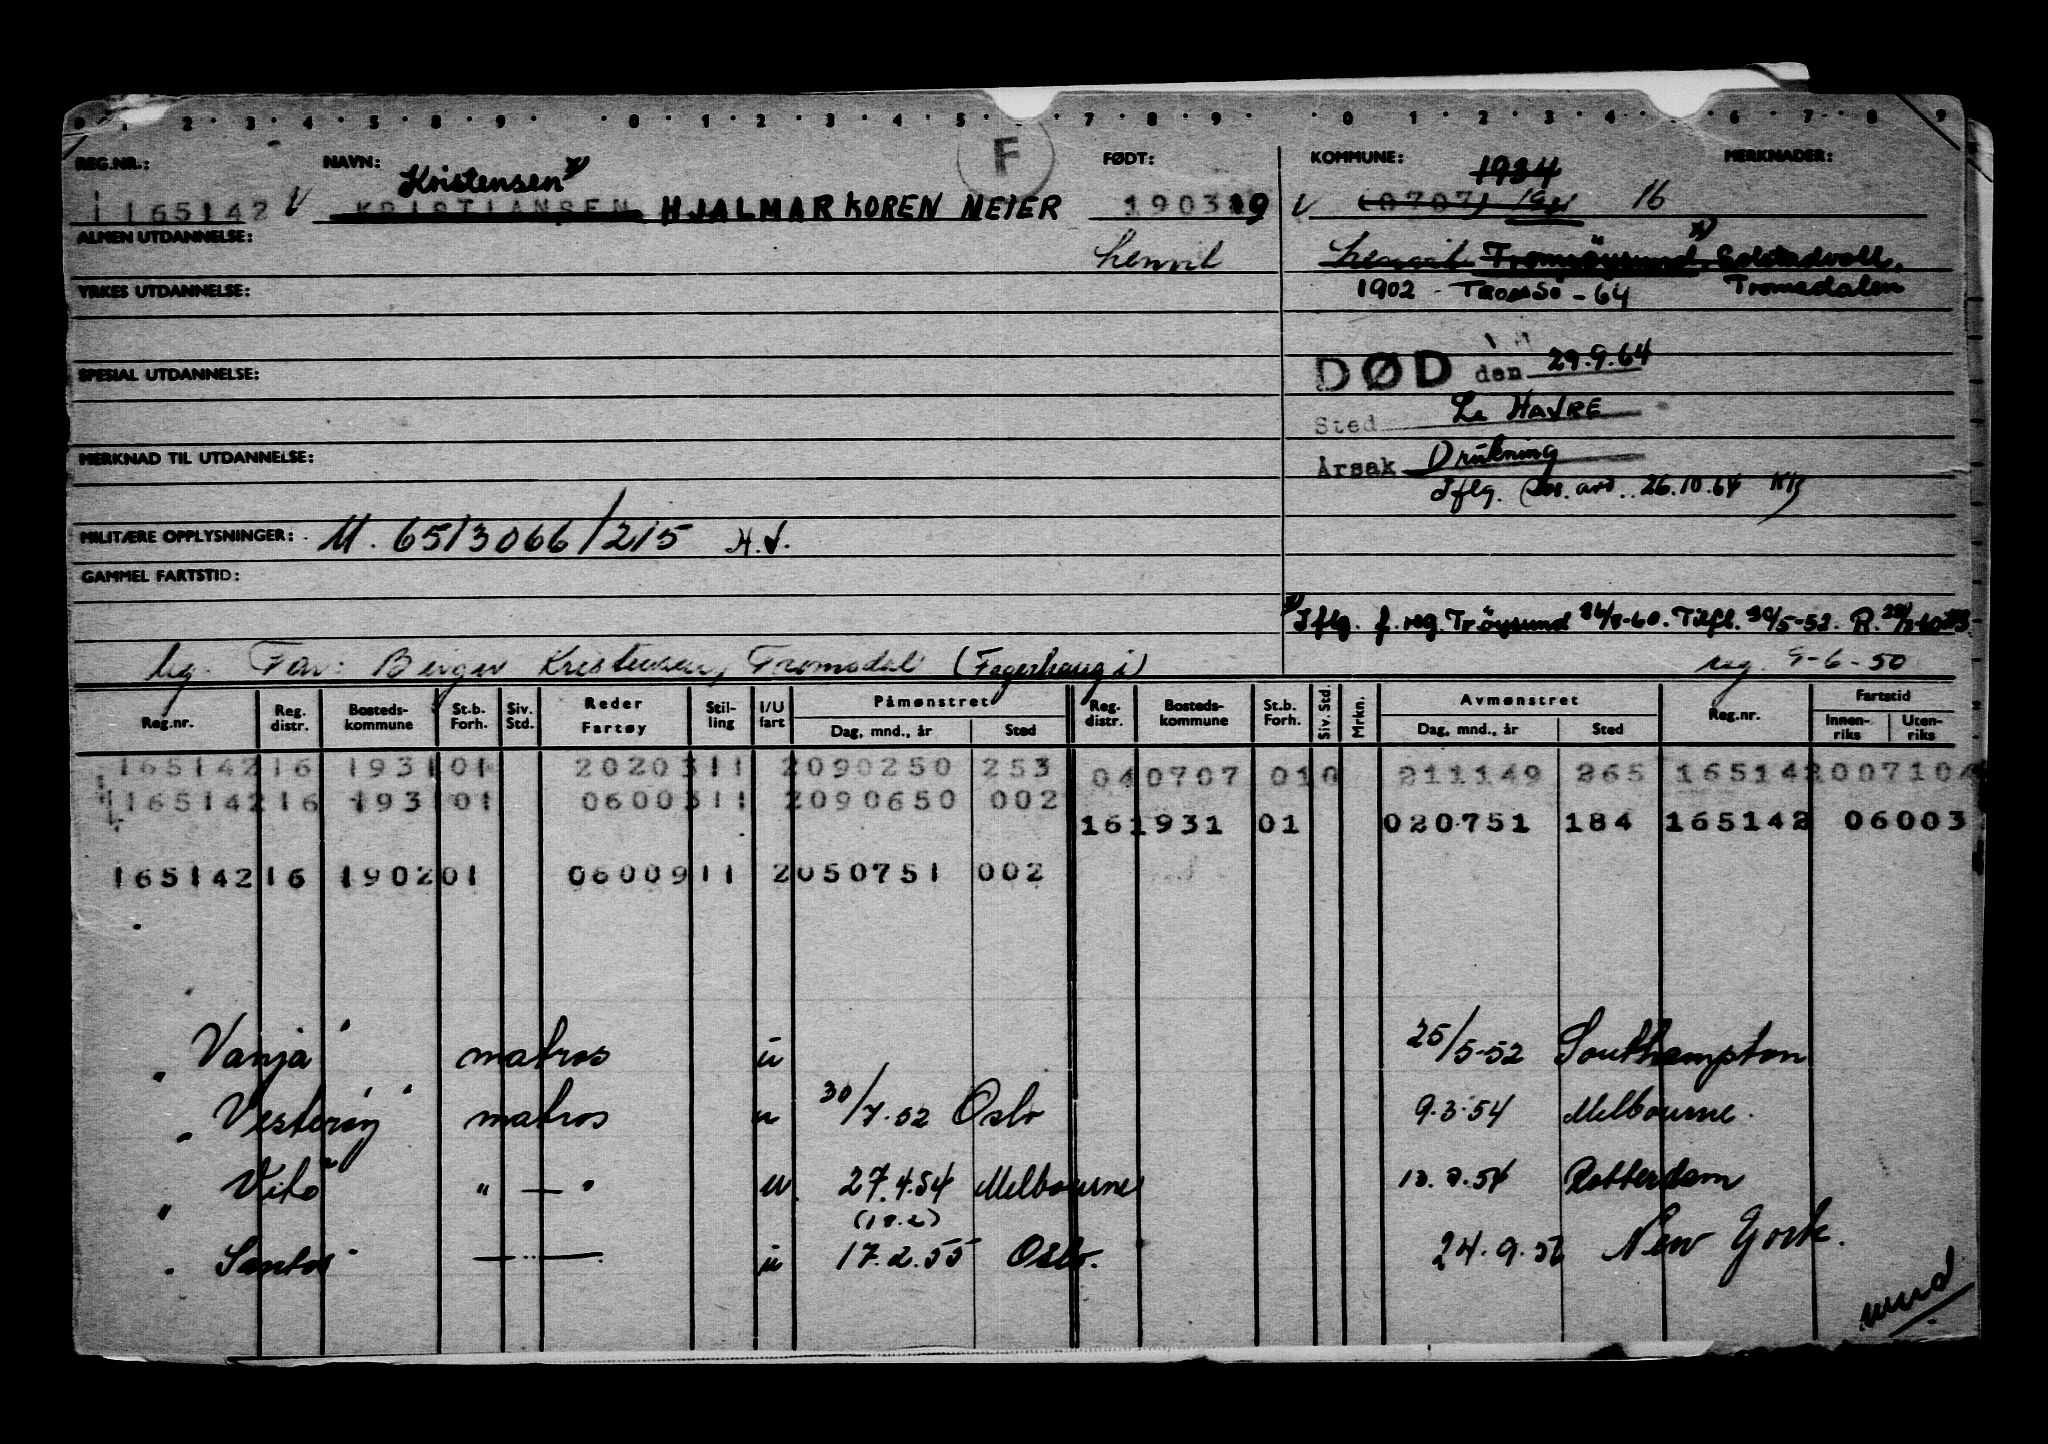 0 1 2 3 4 5 8 9 0 1 2 3 4 5 7 8 9 0 1 2 3 4 6 7 8 9
REG.NR.: NAVN: F FØDT: KOMMUNE: 1934 MERKNADER:
Kristensen x)
165142 V KRISTIANSEN HJALMAR KOREN MEIER 190319 V (0707) 1931 16
ALMEN UTDANNELSE: Lenvik Lenvik Tromsöysund, x) Solstadvoll,
YRKES UTDANNELSE: 1902 - TROMSÖ - 64 Tromsdalen
SPESIAL UTDANNELSE: DØD den 29.9.64
Sted Le HAVRE
MERKNAD TIL UTDANNELSE: Årsak Drukning
Iflg. 26.10.64
MILITÆRE OPPLYSNINGER: M. 6513066/215 H.V.
GAMMEL FARTSTID:
x) Iflg. f. reg. Tröysund 24/8-60. Tilfl. 30/5-52.
Far: Birger Kristensen, Tromsdal (Fagerhaug i) reg. 9-6-50
Reg.nr. Reg. distr. Bosteds- kommune St.b. Forh. Siv. Std. Reder Fartøy Stil- ling I/U fart Påmønstret Dag, mnd., år Sted Reg. distr. Bosteds- kommune St.b. Forh. Siv. Std. Mrkn. Avmønstret Dag, mnd., år Sted Reg.nr. Fartstid Innen- riks Uten- riks
165142 16 1931 01 2020311 2090250 253 04 0707 010 211149 265 165142 007104
165142 16 1931 01 0600311 2090650 002
16 1931 01 020751 184 165142 06003
165142 16 1902 01 0600911 2050751 002
"Vanja" matros u 25/5-52 Southampton
"Vesterøy" matros u 30/7.52 Oslo 9.3.54 Melbourne.
"Vito" " — " u 27.4.54 Melbourne 54 Rotterdam
"Santos" — " — u 17.2.55 Oslo. 24.9.56 New York.